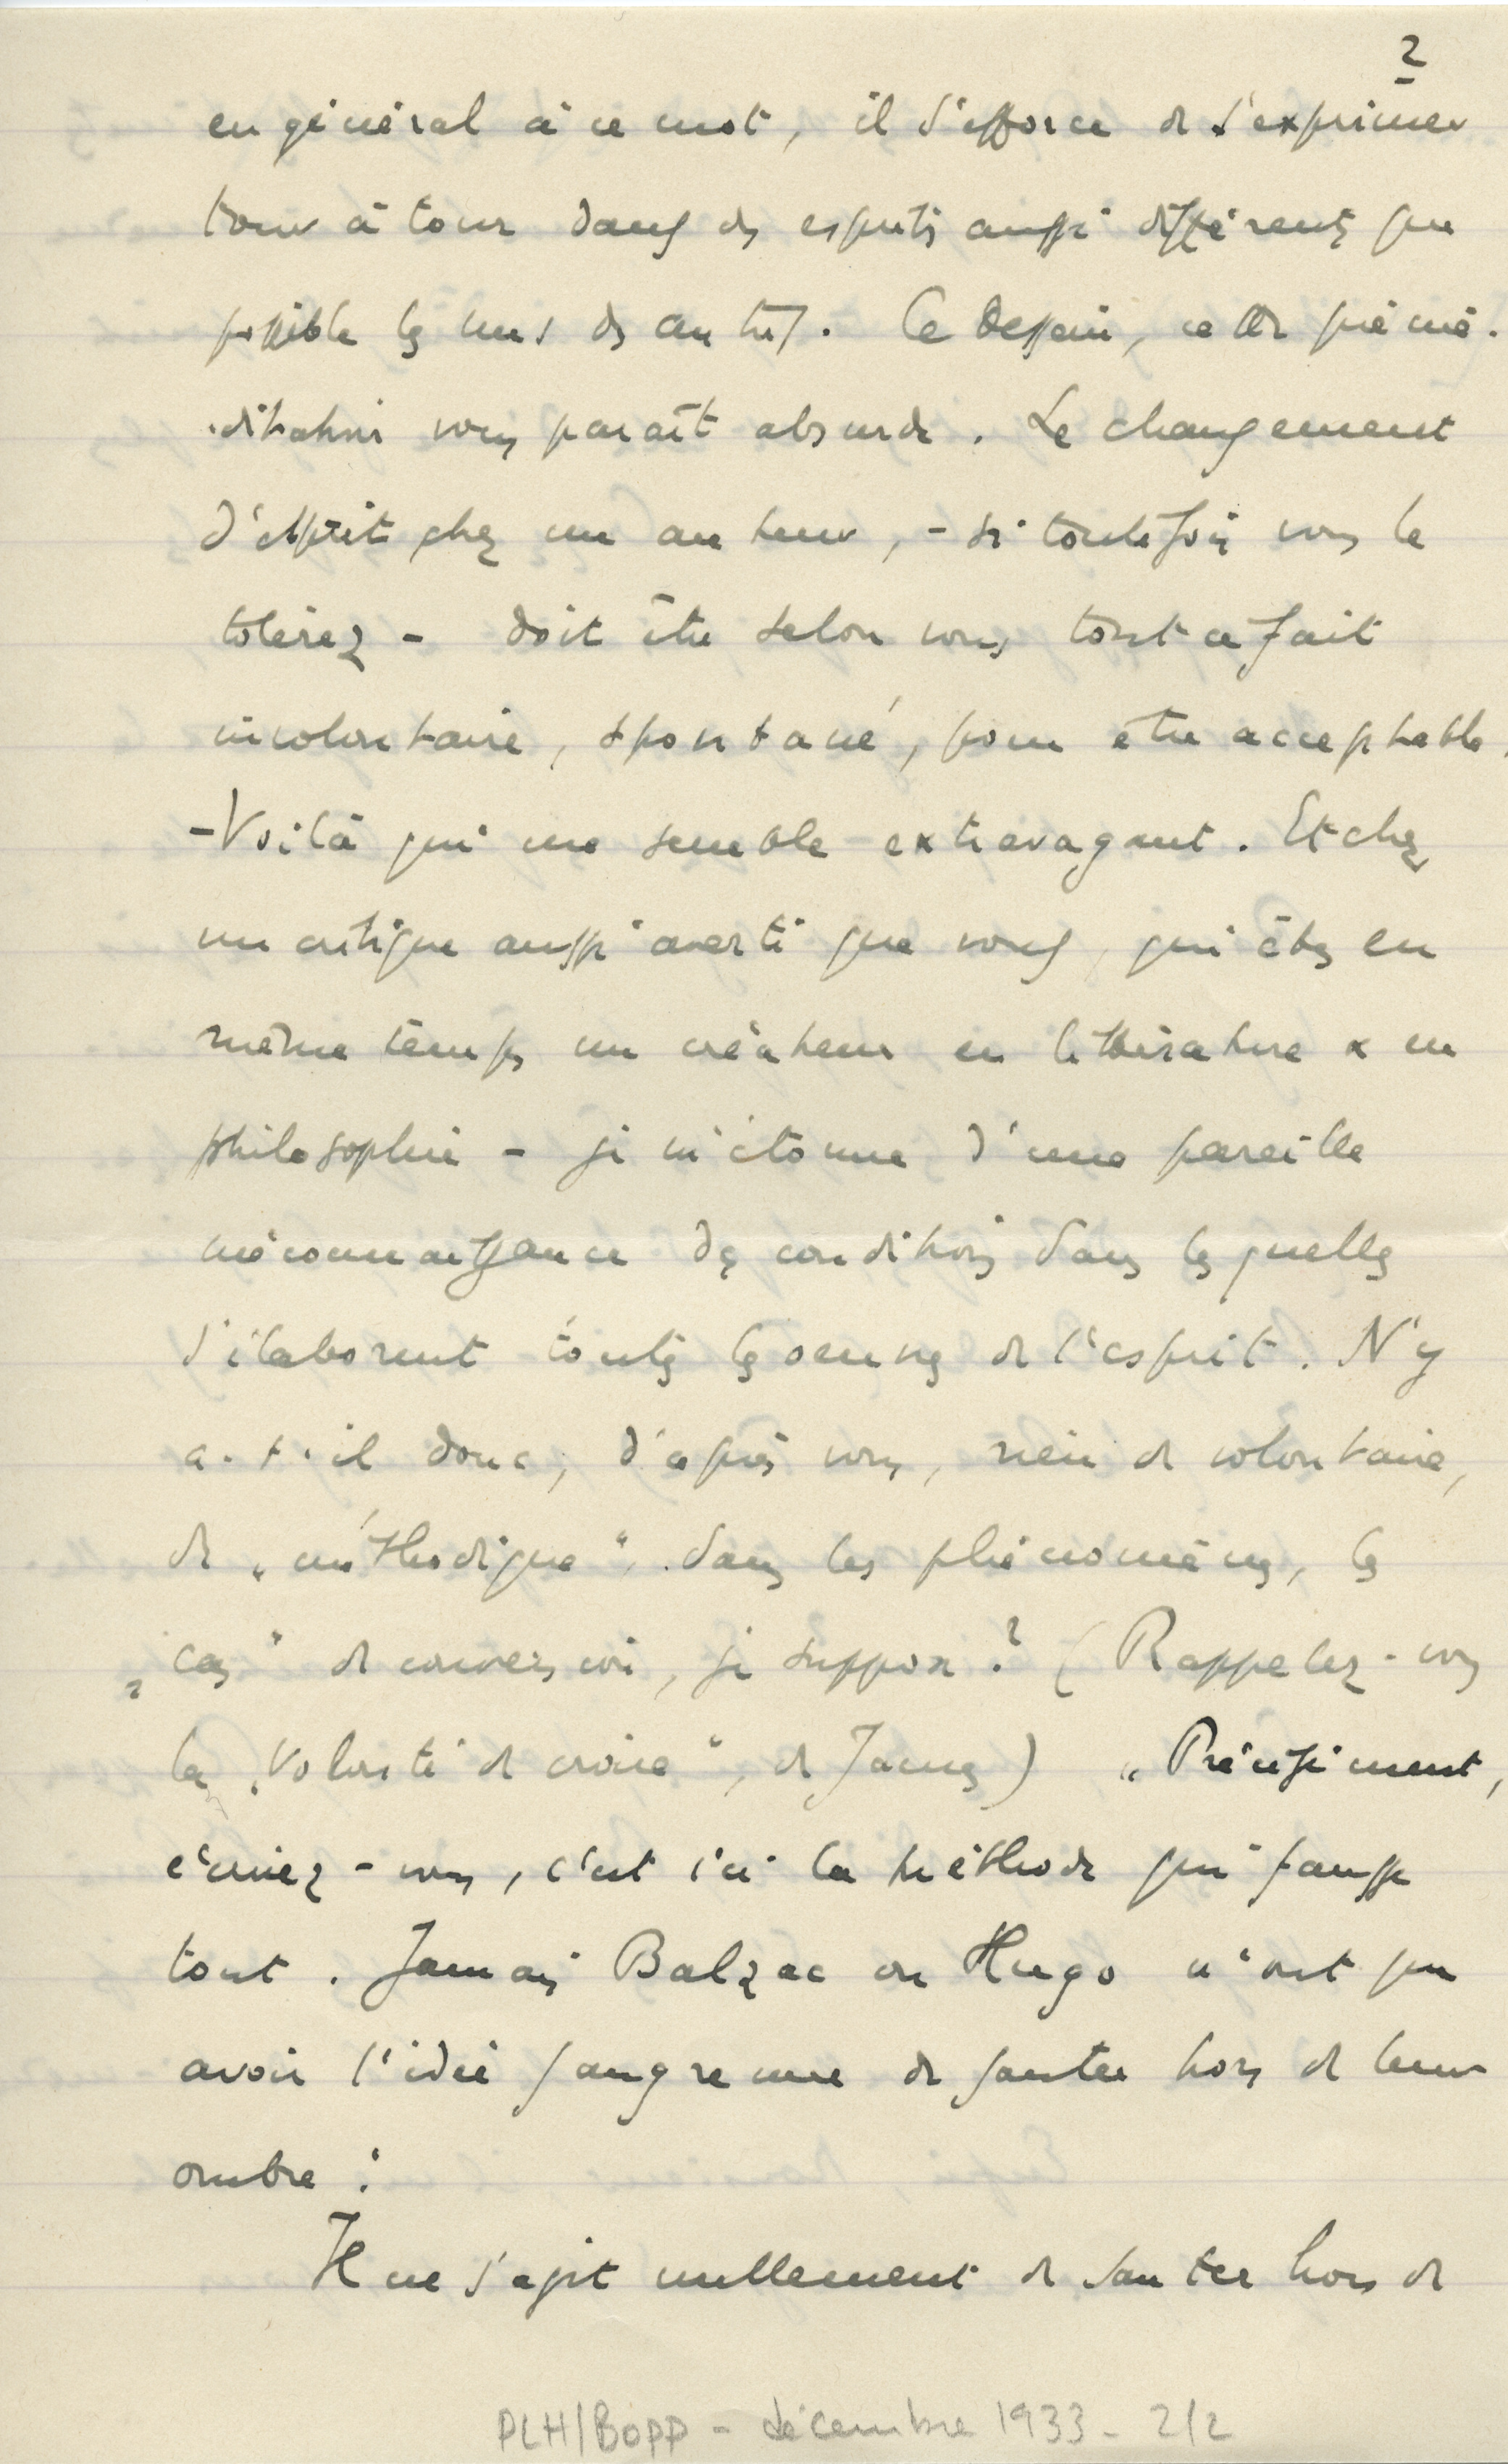 2
en général à ce mot, il s'efforce de s'exprimer
tour à tour dans des esprits aussi différents que
possible les uns des autres. Ce dessein, cette prémé-
-ditation vous paraît absurde. Le changement
d'esprit chez un auteur, - si toutefois vous le
tolérez - doit être selon vous tout a fait
involontaire, spontané, pour être acceptable.
- Voilà qui me semble extravagant. Et chez
un critique aussi averti que vous, qui êtes en
même temps un créateur en littérature & en
philosophie - je m'étonne d'une pareille
méconnaissance des conditions dans lesquelles
s'élaborent toutes les oeuvres de l'esprit. N'y
a-t-il donc, d'après vous, rien de volontaire,
de "méthodique", dans les phénomènes, les
"cas" de conversion, je suppose? (Rappelez-vous
la "Volonté de croire", de James) "Précisément,
écriez-vous, c'est ici la méthode qui fausse
tout. Jamais Balzac ou Hugo n'ont pu
avoir l'idée saugrenue de sauter hors de leur
ombre :
Il ne s'agit nullement de sauter hors de
PLH/BOPP - décembre 1933 - 2/2